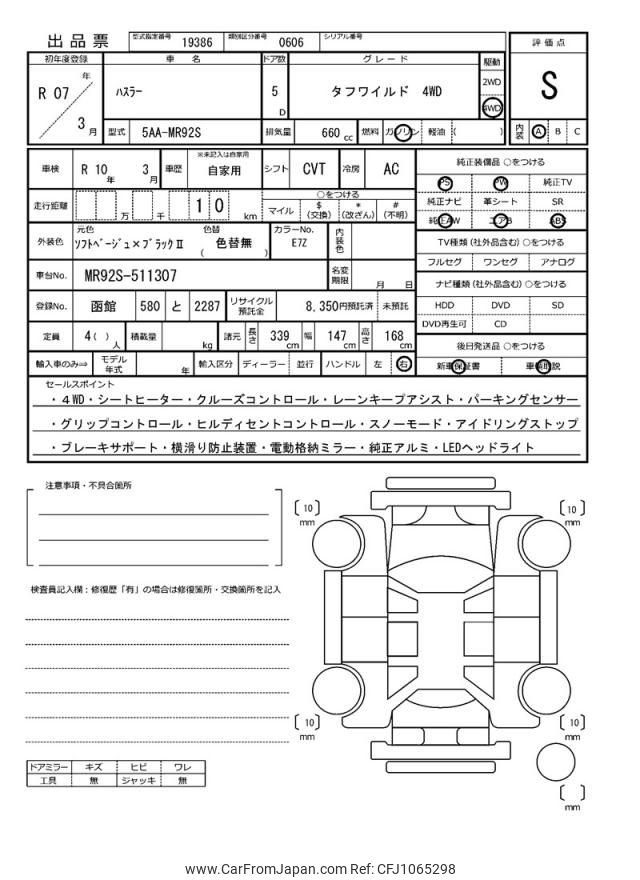 出品票 型式指定番号 19386 類別区分番号 0606 シリアル番号
評価点
S
内装 A B C
初年度登録 車名 ドア数 グレード 駆動
R 07 年 3 月
ハスラー
5 D
タフワイルド 4WD
2WD
4WD
型式 5AA-MR92S 排気量 660 cc 燃料 ガソリン 軽油 ( )
車検 R 10 年 3 月 車歴 ※未記入は自家用 自家用 シフト CVT 冷房 AC
走行距離 万 千 1 0 km
○をつける
マイル $(交換) *(改ざん) #(不明)
外装色 元色 ソフトベージュ×ブラックⅡ 色替 色替無 ( ) カラーNo. E7Z 内装色
車台No. MR92S-511307 名変期限 月 日
登録No. 函館 580 と 2287 リサイクル預託金 8,350円預託済 未預託
定員 4( )人 積載量 kg 諸元 長さ 339 cm 幅 147 cm 高さ 168 cm
輸入車のみ⇒ モデル年式 年 輸入区分 ディーラー 並行 ハンドル 左 右
純正装備品 ○をつける
PS PW 純正TV
純正ナビ 革シート SR
純正AW エアB ABS
TV種類 (社外品含む) ○をつける
フルセグ ワンセグ アナログ
ナビ種類 (社外品含む) ○をつける
HDD DVD SD
DVD再生可 CD
後日発送品 ○をつける
新車保証書 車輌取説
セールスポイント
・4WD・シートヒーター・クルーズコントロール・レーンキープアシスト・パーキングセンサー
・グリップコントロール・ヒルディセントコントロール・スノーモード・アイドリングストップ
・ブレーキサポート・横滑り防止装置・電動格納ミラー・純正アルミ・LEDヘッドライト
注意事項・不具合箇所
検査員記入欄：修復歴「有」の場合は修復箇所・交換箇所を記入
ドアミラー キズ ヒビ ワレ
工具 無 ジャッキ 無
〔10〕mm
〔10〕mm
〔10〕mm
〔10〕mm
〔 〕mm
www.CarFromJapan.com Ref: CFJ1065298